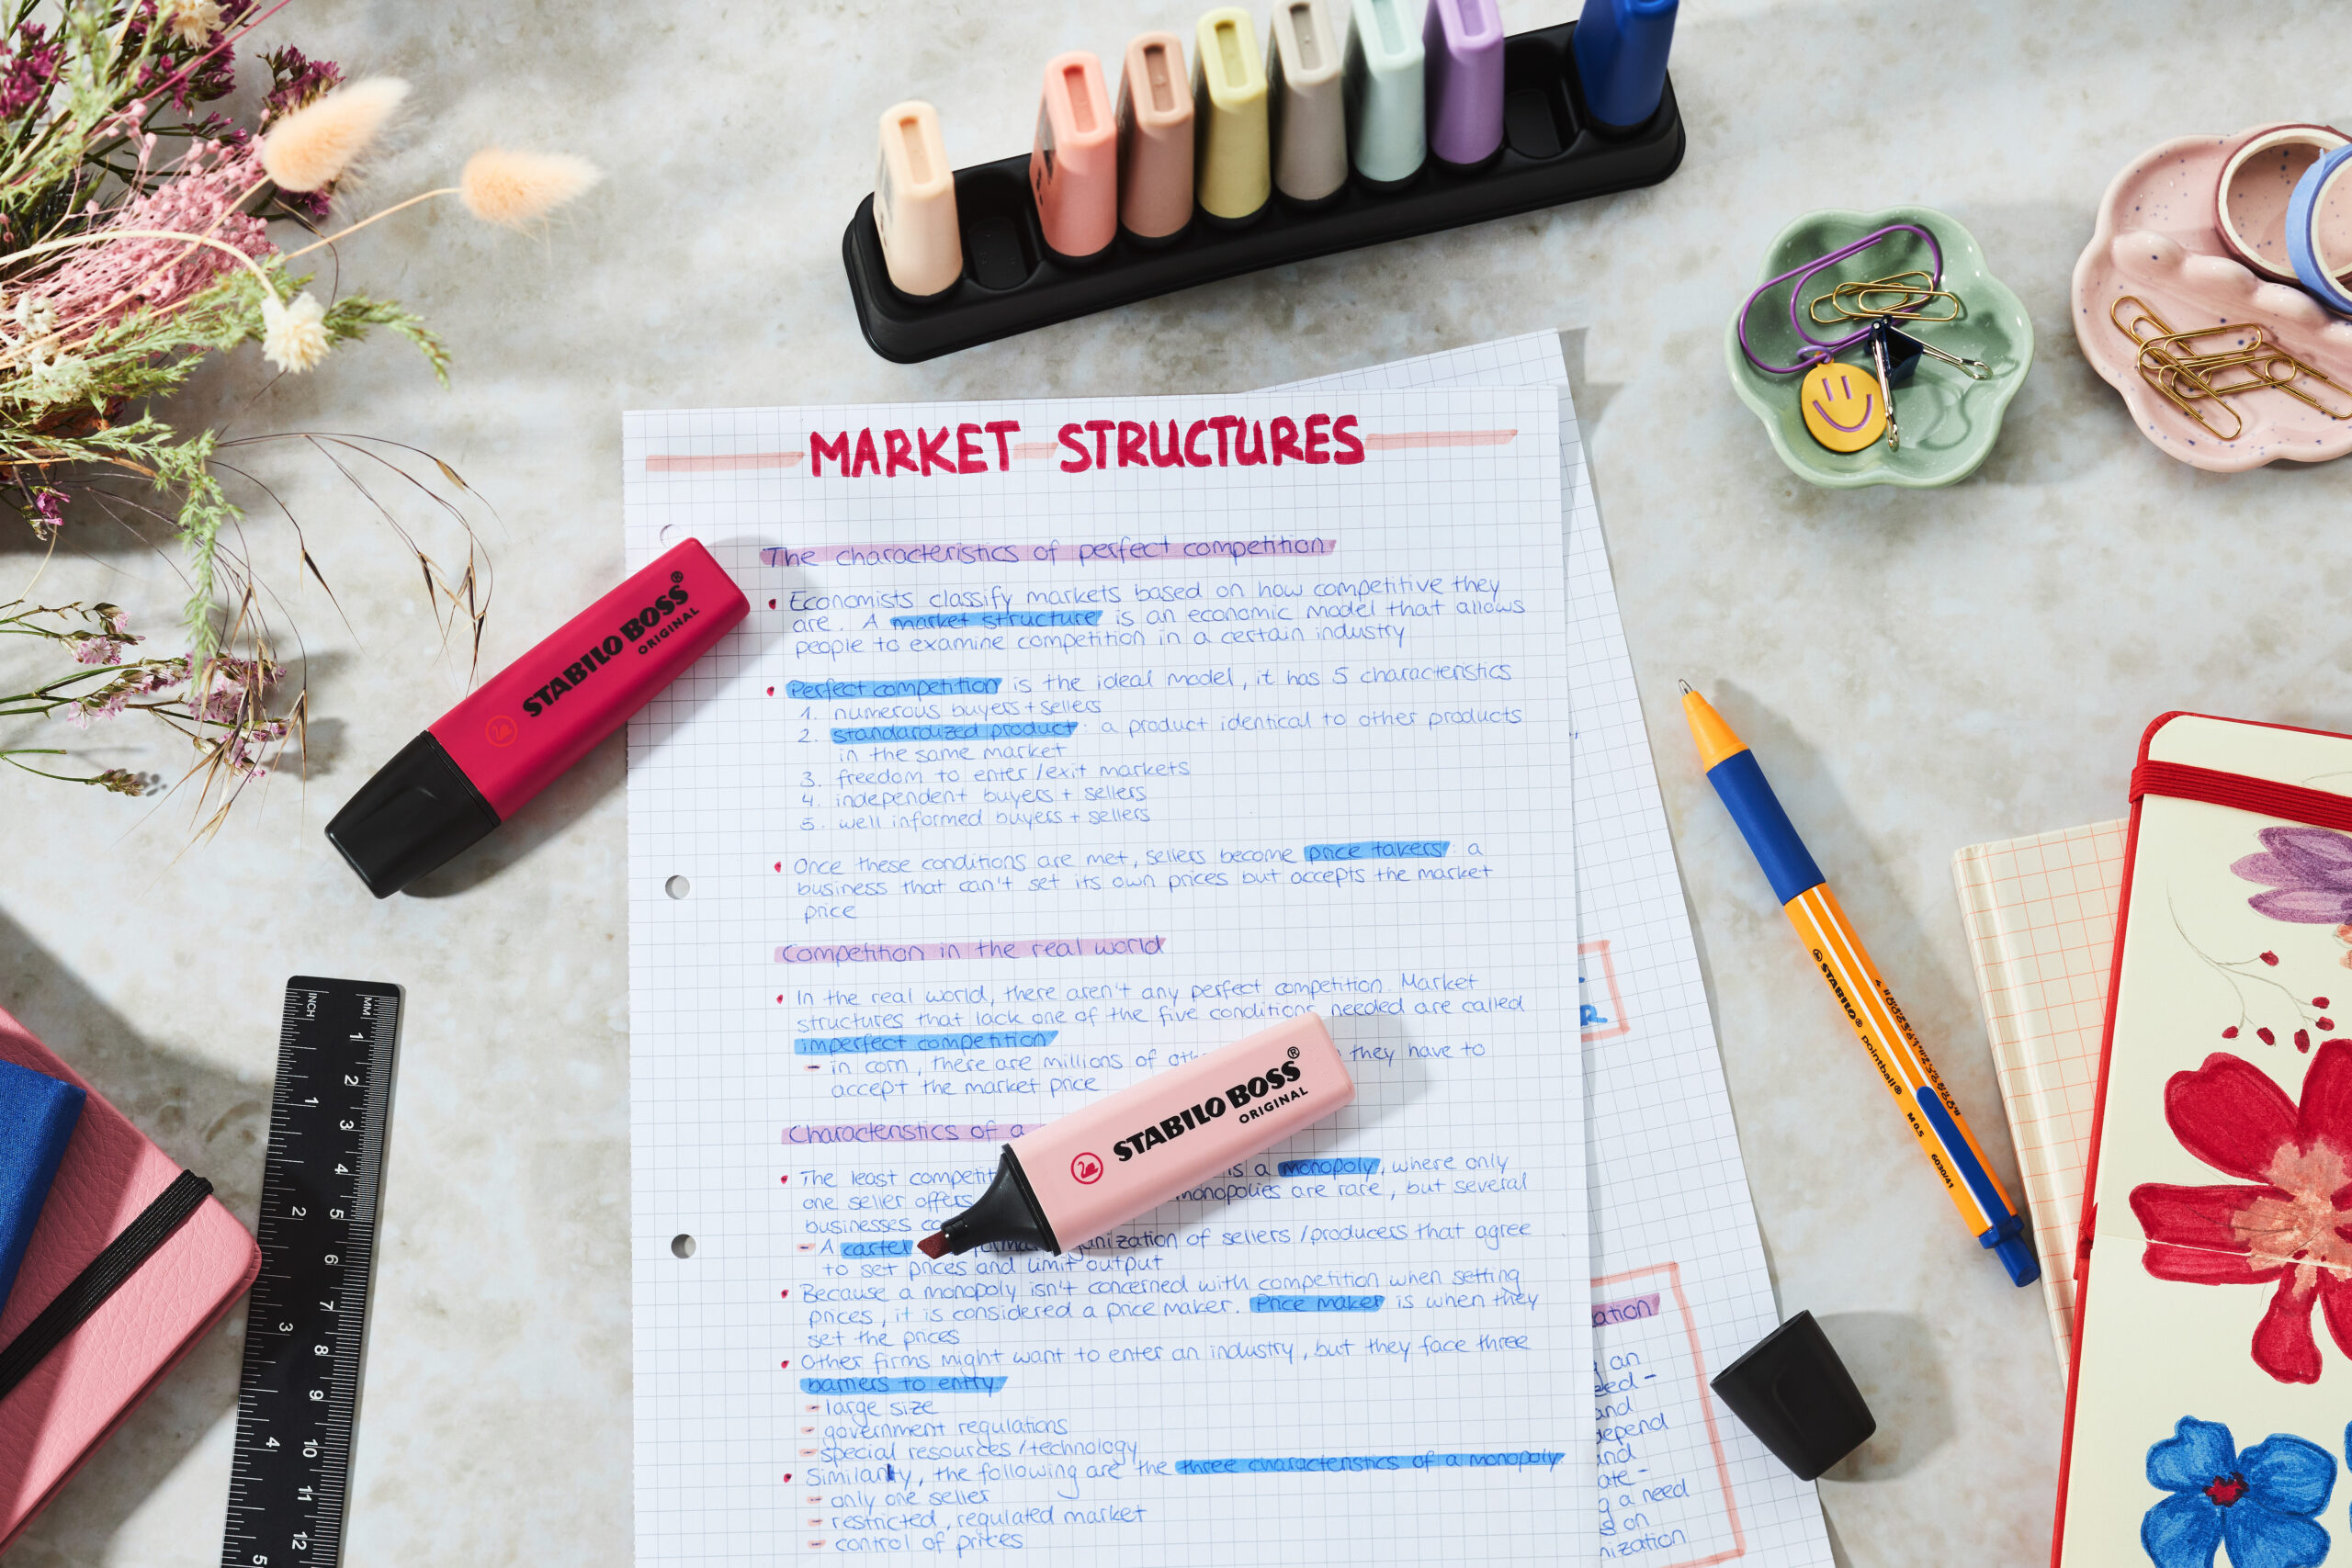 MARKET STRUCTURES
The characteristics of perfect competition
Economists classify markets based on how competitive they
are. A market structure is an economic model that allows
people to examine competition in a certain industry
Perfect competition is the ideal model, it has 5 characteristics
1. numerous buyers + sellers
2. standardized product: a product identical to other products
in the same market
3. freedom to enter/exit markets
4. independent buyers + sellers
5. well informed buyers + sellers
Once these conditions are met, sellers become price takers: a
business that can't set its own prices but accepts the market
price
Competition in the real world
In the real world, there aren't any perfect competition. Market
structures that lack one of the five conditions needed are called
imperfect competition
- in corn, there are millions of they have to
accept the market price
Characteristics of a
The least is a monopoly, where only
one seller offers monopolies are rare, but several
businesses
- A cartel of sellers/producers that agree
to set prices and limit output
Because a monopoly isn't concerned with competition when setting
prices, it is considered a price maker. Price maker is when they
set the prices
Other firms might want to enter an industry, but they face three
barriers to entry.
- large size
- government regulations
- special resources/technology
Similarly, the following are the three characteristics of a monopoly
- only one seller
- restricted, regulated market
- control of prices
STABILO BOSS®
ORIGINAL
STABILO BOSS®
ORIGINAL
STABILO® pointball® M 0.5 6030/41
INCH
MM
1
2
3
4
5
6
7
8
9
10
11
12
1
2
3
4
5
ation
an
and
depend
and
a need
on